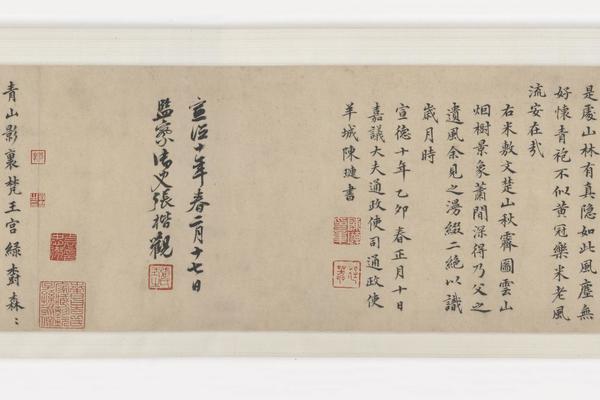 是處山林有真隐如此風塵無
好懷青袍不似黄冠樂米老風
流安在㢤
右米敷文楚山秋霽圖雲山
烟樹景象蕭閒深得乃父之
遺風余見之漫綴二絶以識
歲月時
宣德十年乙卯春正月十日
嘉議大夫通政使司通政使
羊城陳璉書
宣德十年春二月十七日
監察御史張楷觀
青山影裏梵王宫緑樹森〻